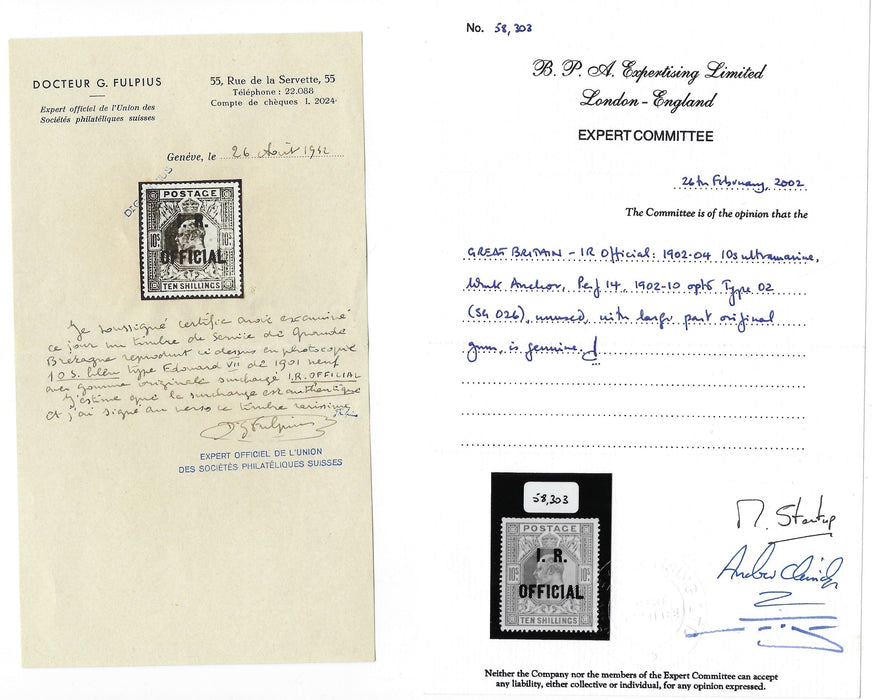 DOCTEUR G. FULPIUS
Expert officiel de l'Union des
Sociétés philatéliques suisses
55, Rue de la Servette, 55
Téléphone : 22.088
Compte de chèques I. 2024
Genève, le 26 Août
POSTAGE
I. R.
10s 10s
OFFICIAL
TEN SHILLINGS
Je soussigné certifie avoir examiné
ce jour un timbre de service de Grande
Bretagne reproduit ci dessus en photocopie
10 S. bleu type Edouard VII de 1901 neuf
avec gomme originale surchargé I.R. OFFICIAL
J'estime que la surcharge est authentique
et j'ai signé au verso ce timbre rarissime
Dr G Fulpius
EXPERT OFFICIEL DE L'UNION
DES SOCIÉTÉS PHILATÉLIQUES SUISSES
No. 58,303
B. P. A. Expertising Limited
London - England
EXPERT COMMITTEE
26th February, 2002
The Committee is of the opinion that the
GREAT BRITAIN - IR Official: 1902-04 10s ultramarine,
Wmk Anchor, Perf 14, 1902-10 optd Type O2
(SG O26), unused, with large part original
gum, is genuine.
58,303
POSTAGE
I. R.
10s 10s
OFFICIAL
TEN SHILLINGS
M. Startup
Neither the Company nor the members of the Expert Committee can accept
any liability, either collective or individual, for any opinion expressed.